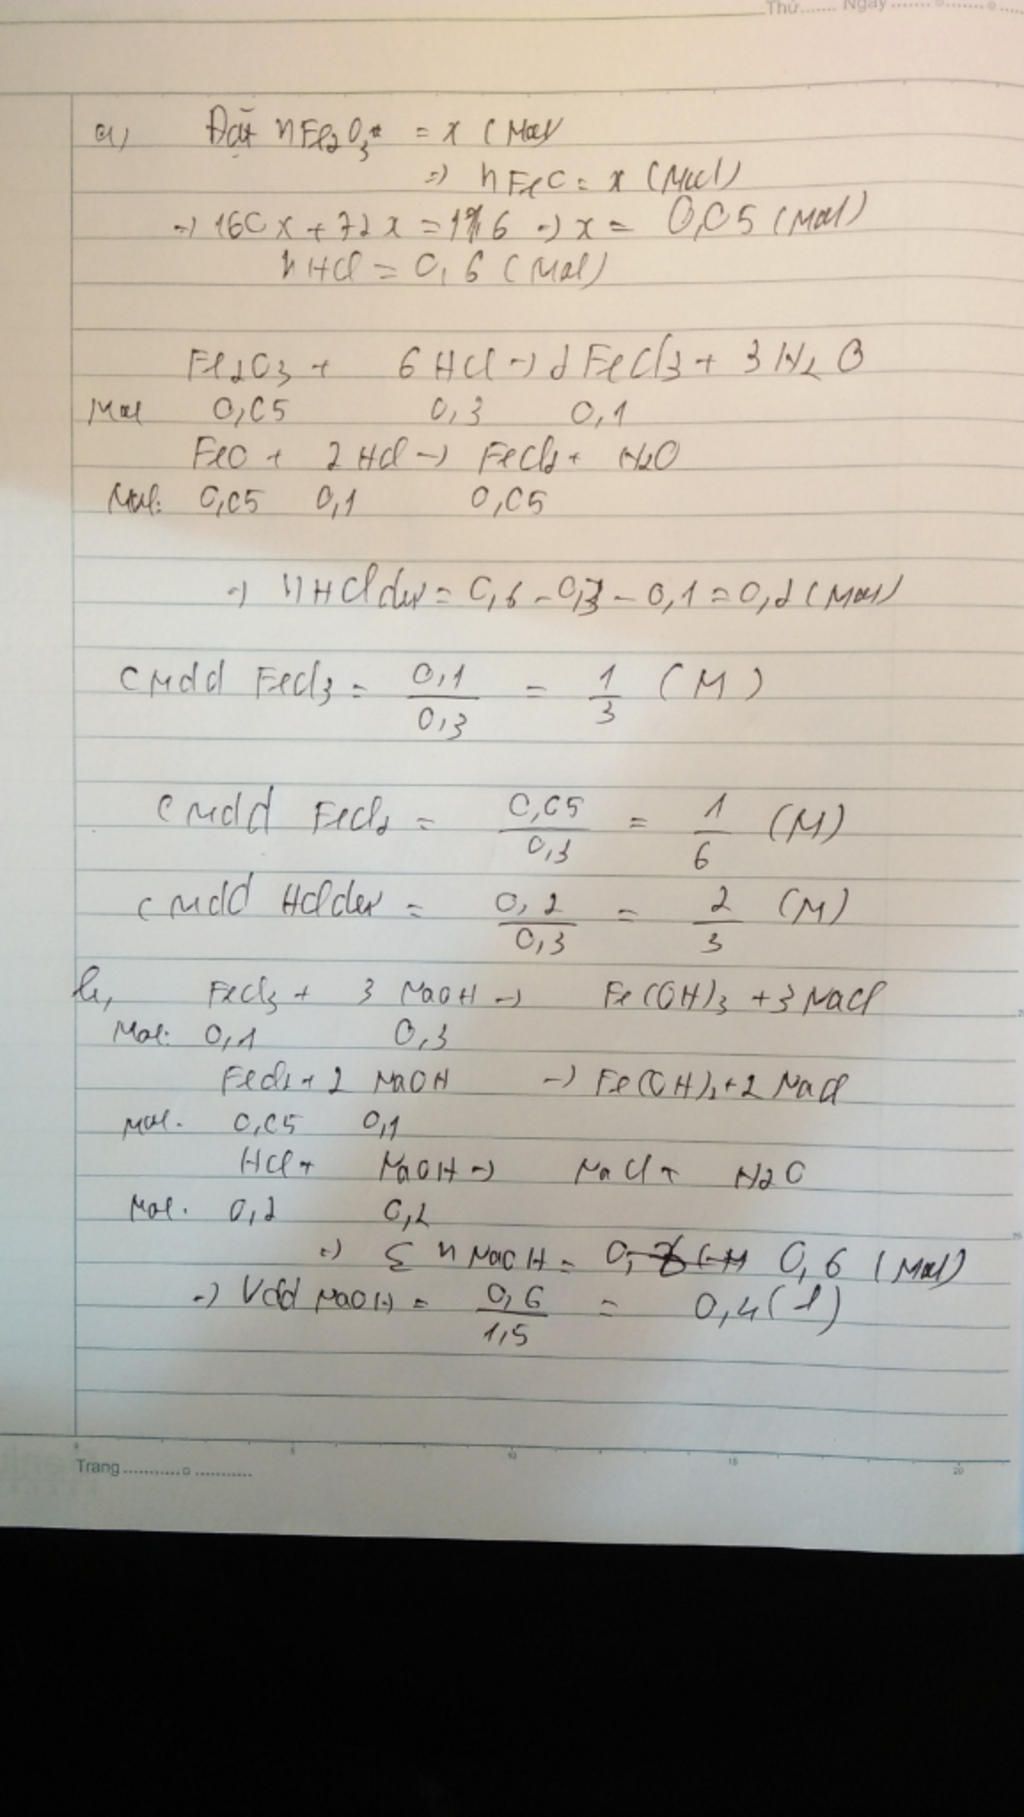 Thứ....... Ngày
a) Đặt nFe2O3 = x (Mol)
=) nFeO = x (Mol)
=) 160x + 72x = 11,6 =) x = 0,05 (Mol)
nHCl = 0,6 (Mol)
Fe2O3 + 6HCl -) 2FeCl3 + 3H2O
Mol 0,05 0,3 0,1
FeO + 2HCl -) FeCl2 + H2O
Mol: 0,05 0,1 0,05
=) nHCl dư = 0,6 - 0,3 - 0,1 = 0,2 (Mol)
CMdd FeCl3 = 0,1/0,3 = 1/3 (M)
CMdd FeCl2 = 0,05/0,3 = 1/6 (M)
CMdd HCl dư = 0,2/0,3 = 2/3 (M)
b, FeCl3 + 3 NaOH -) Fe(OH)3 + 3NaCl
Mol: 0,1 0,3
FeCl2 + 2 NaOH -) Fe(OH)2 + 2 NaCl
Mol. 0,05 0,1
HCl + NaOH -) NaCl + H2O
Mol. 0,2 0,2
=) Σ nNaOH = 0,6 (Mol)
=) Vdd NaOH = 0,6/1,5 = 0,4 (l)
Trang
5 10 15 20